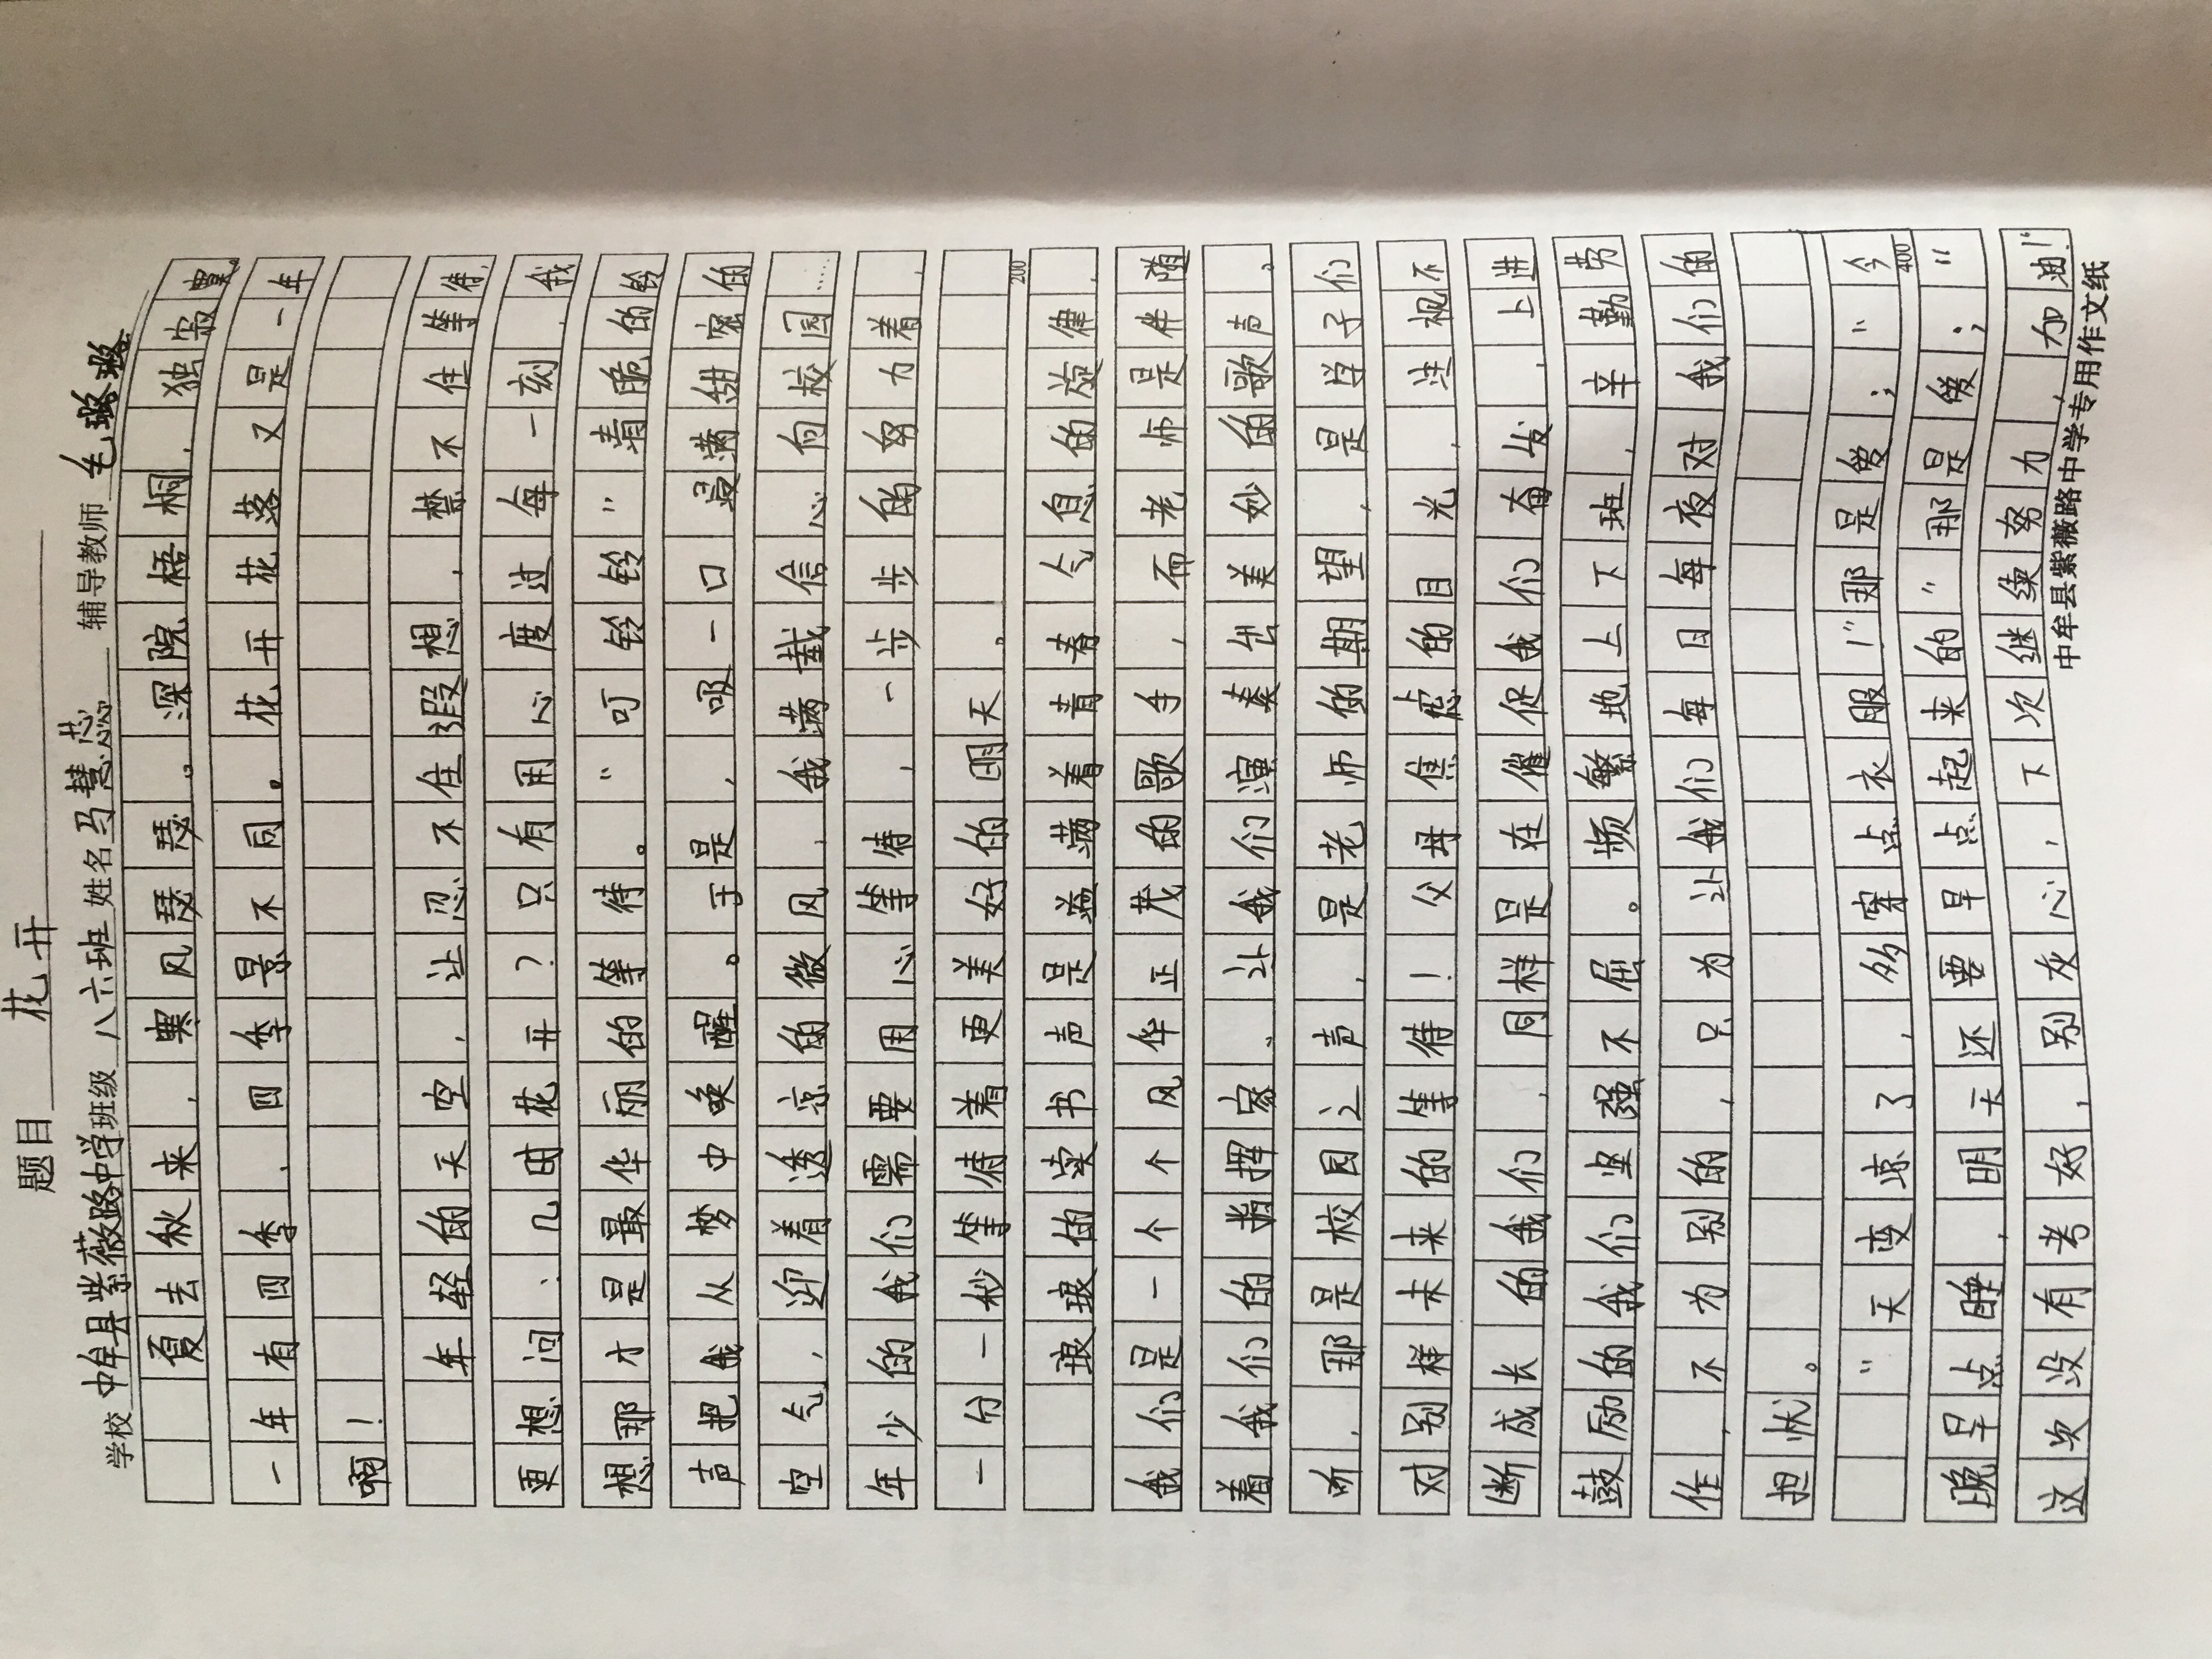 题目 花开
学校 中牟县紫薇路中学 班级 八六班 姓名 马慧芯 辅导教师 毛璐璐
夏去秋来，寒风瑟瑟。深院梧桐，独寂寞。
一年有四季，四季景不同。花开花落又是一年
啊！
年轻的天空，让忍不住遐想，禁不住等待，
更想问，几时花开？只有用心度过每一刻，我
想那才是最华丽的等待。“叮铃铃”清脆的铃
声把我从梦中唤醒。于是，吸一口漫满甜蜜的
空气，迎着透凉的微风，我满载信心向校园……
年少的我们需要用心等待，一步步的努力着，
一分一秒等待着更美好的明天。
200
琅琅的读书声是溢满着青春气息的旋律，
我们是一个个风华正茂的歌手，而老师是伴随
着我们的指挥家。让我们演奏出美妙的歌声。
听，那是校园之声，是老师的期望，是学子们
对别样未来的等待！父母焦虑的目光，注视不
断成长的我们，同样是在催促我们奋发，上进
鼓励的我们坚强不屈。频繁地上下班，辛勤劳
作，不为别的，只为让我们每日每夜对我们的
担忧。
“天变凉了，多穿点衣服！”那是爱；“今
400
晚早点睡，明天还要早点起来的”那是爱；“
这次没有考好，别灰心，下次继续努力，加油！”
中牟县紫薇路中学专用作文纸